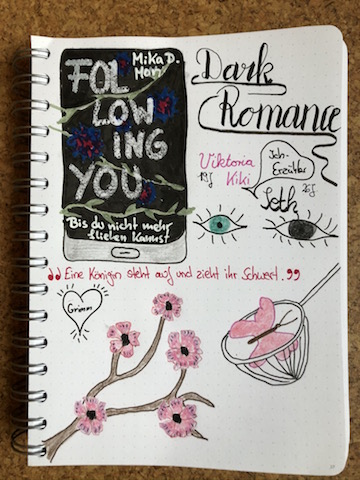 Mika D. Mon
FOL
LOW
ING
YOU
Bis du nicht mehr
fliehen kannst
Dark
Romance
Viktoria
19J Kiki
Ich-
Erzähler
Seth 26J
"Eine Königin steht auf und zieht ihr Schwert."
Grimm